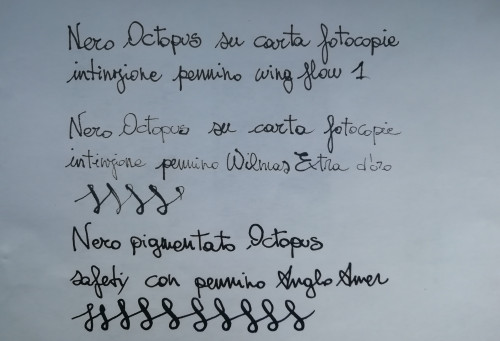 Nero Octopus su carta fotocopie
intinzione pennino wing flow 1
Nero Octopus su carta fotocopie
intinzione pennino Wilmas Extra d'oro
Nero pigmentato Octopus
safety con pennino Anglo Amer